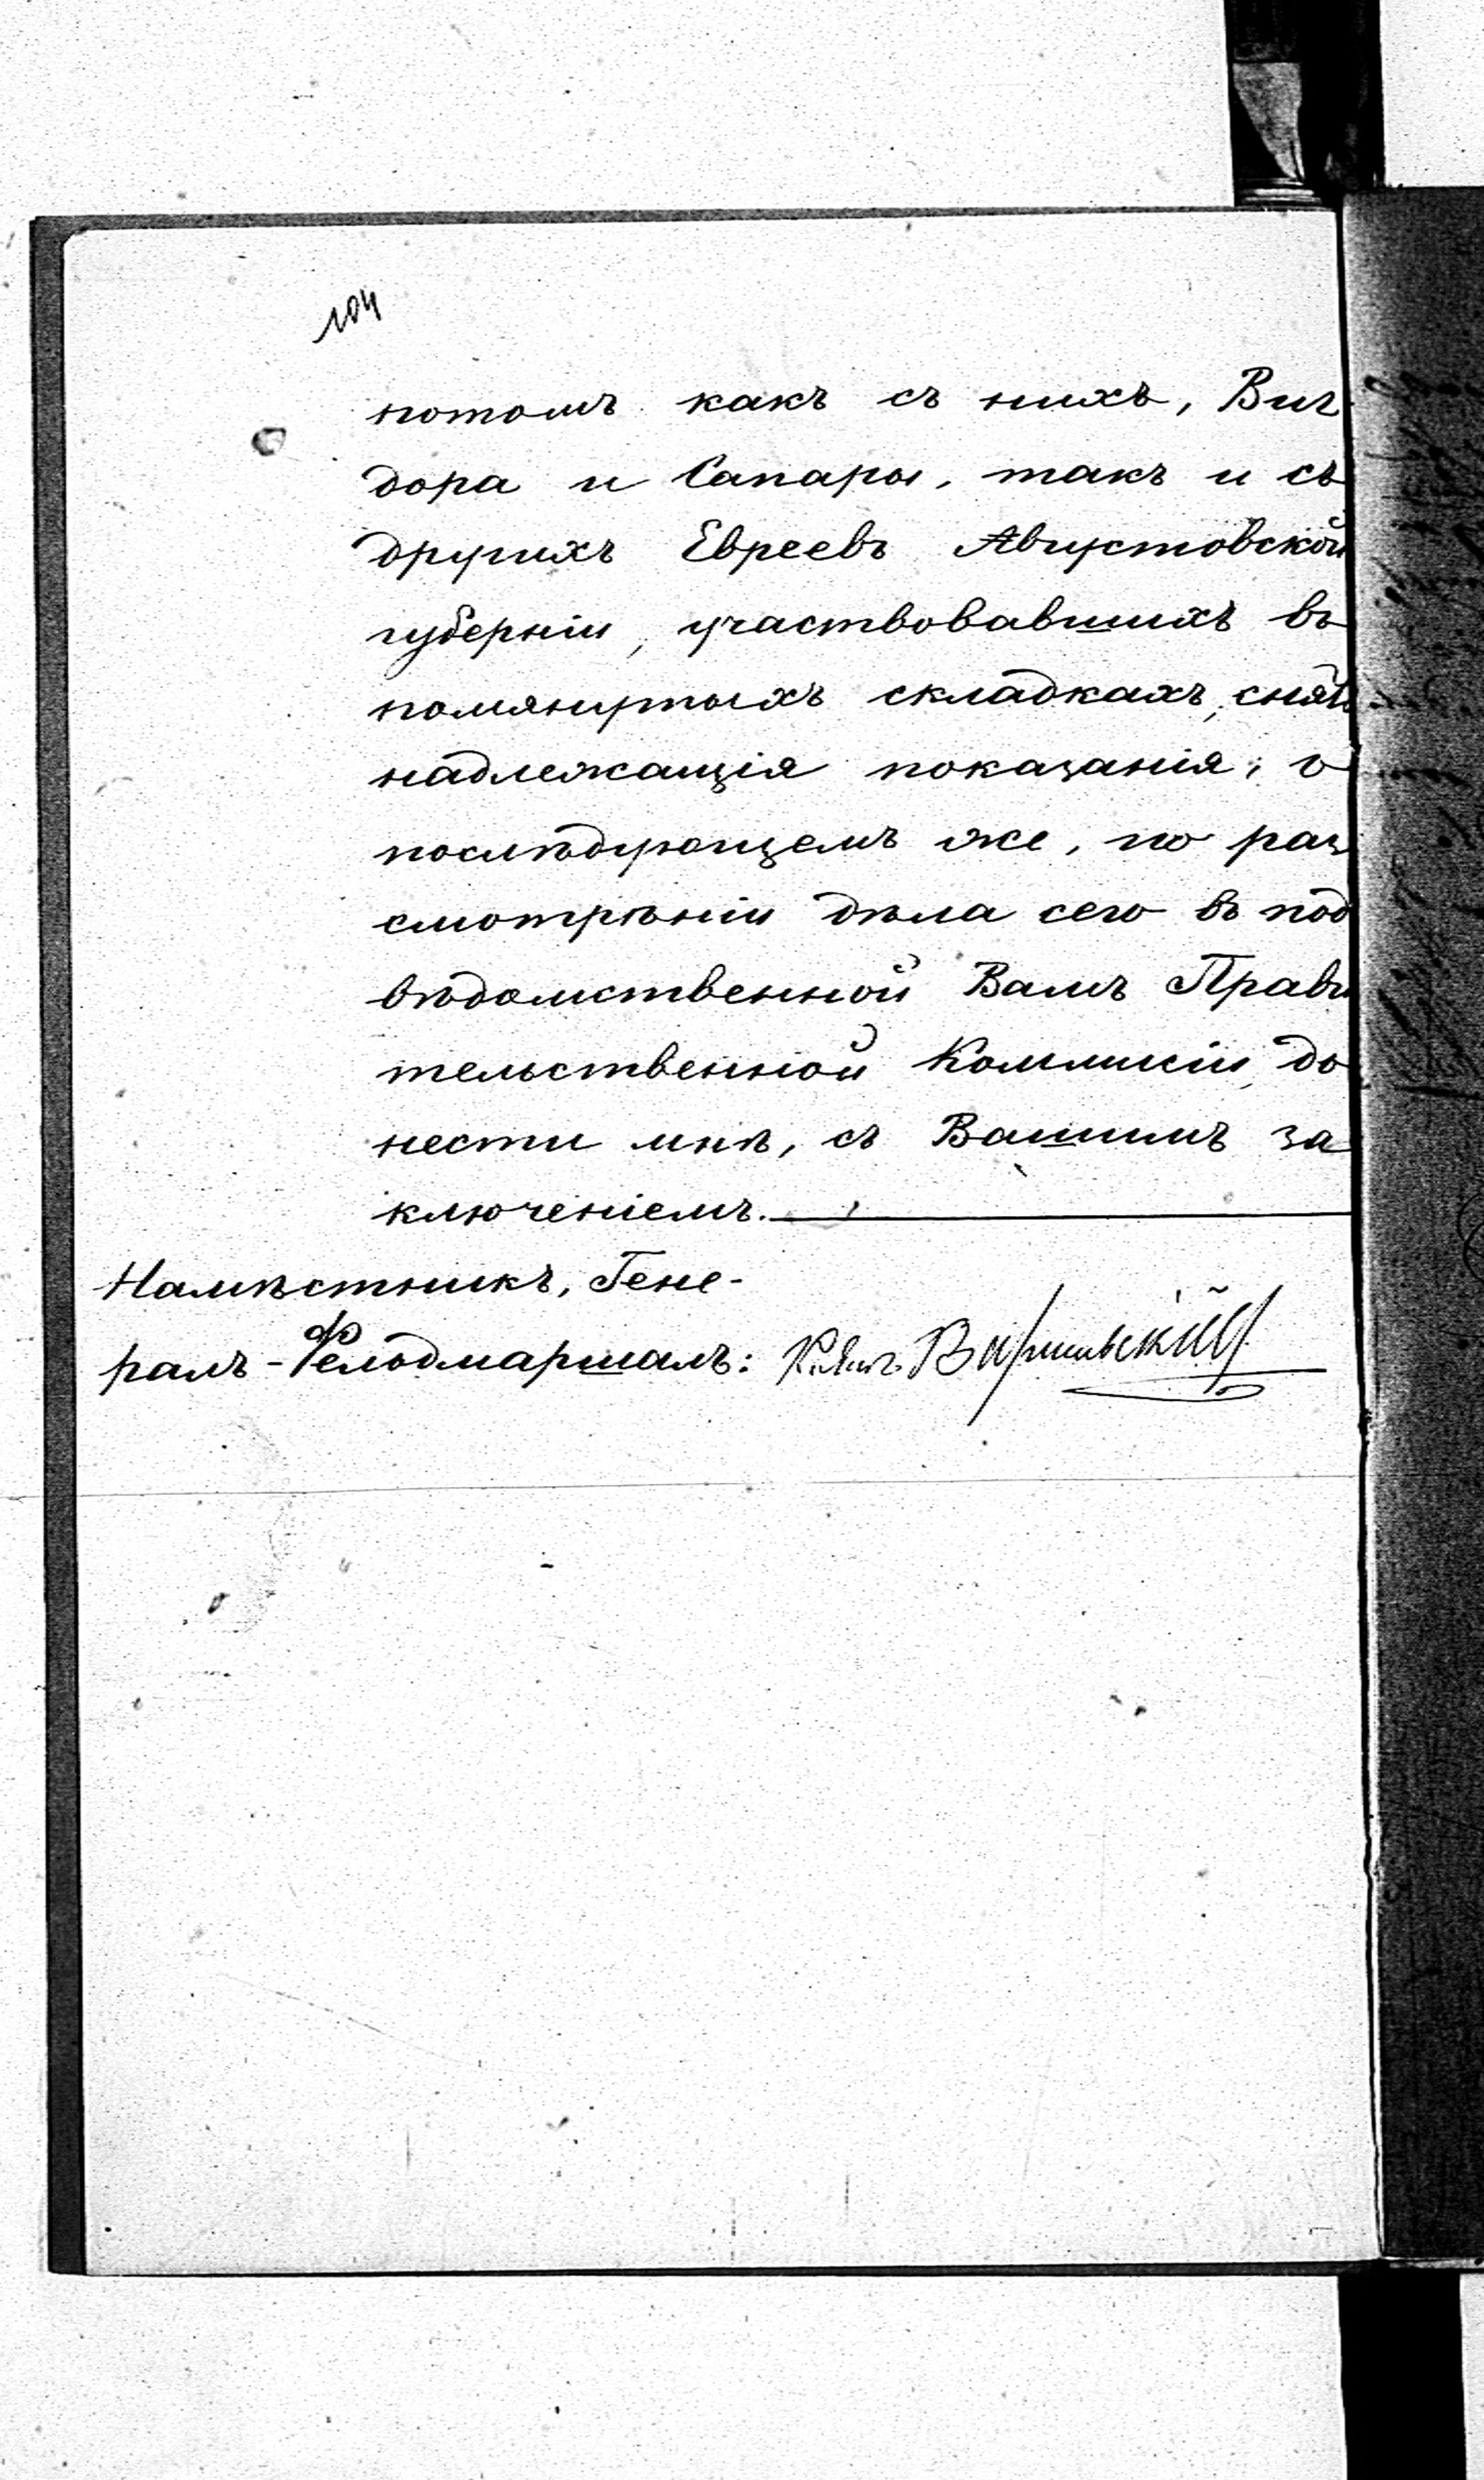 104
потомъ какъ съ нихъ, Виг
дора и Сапары, такъ и съ
другихъ Евреевъ Августовской
губерніи, участвовавшихъ въ
помянутыхъ складкахъ, снять
надлежащія показанія; о
послѣдующемъ же, по раз
смотрѣніи дѣла сего въ под
вѣдомственной Вамъ Прави
тельственной Коммисіи, до
нести мнѣ, съ Вашимъ за
ключеніемъ.
Намѣстникъ, Гене-
ралъ-Фельдмаршалъ: Князь Варшавскій